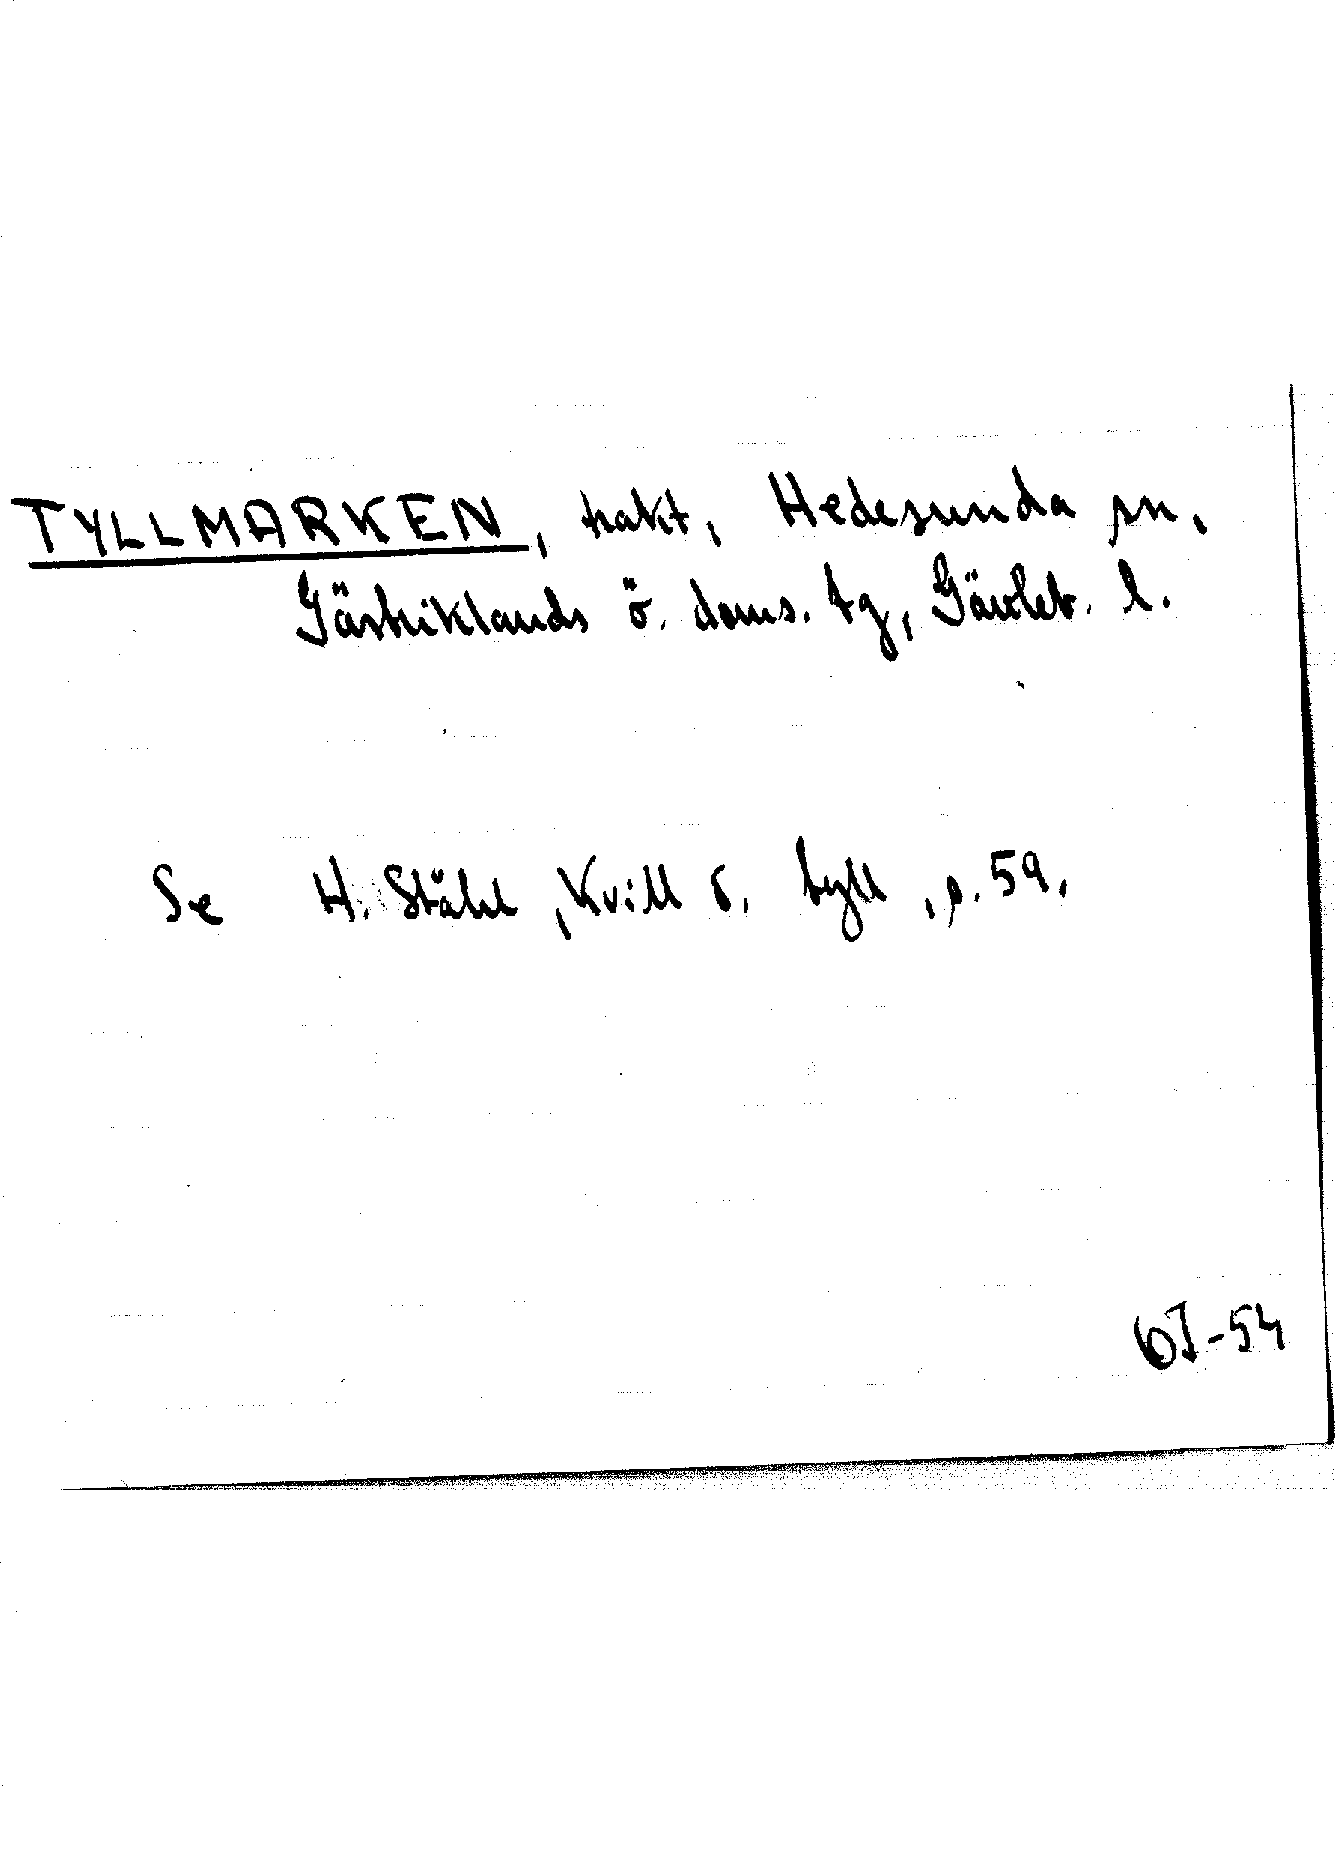 TYLLMARKEN, trakt, Hedesunda sn,
Gästriklands ö. doms. tg, Gävleb. l.
Se H. Ståhl, Kvill o. tyll, s. 59.
-54